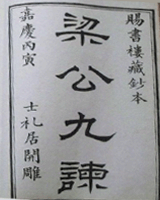 賜書樓藏鈔本
梁公九諫
嘉慶丙寅
士礼居開雕